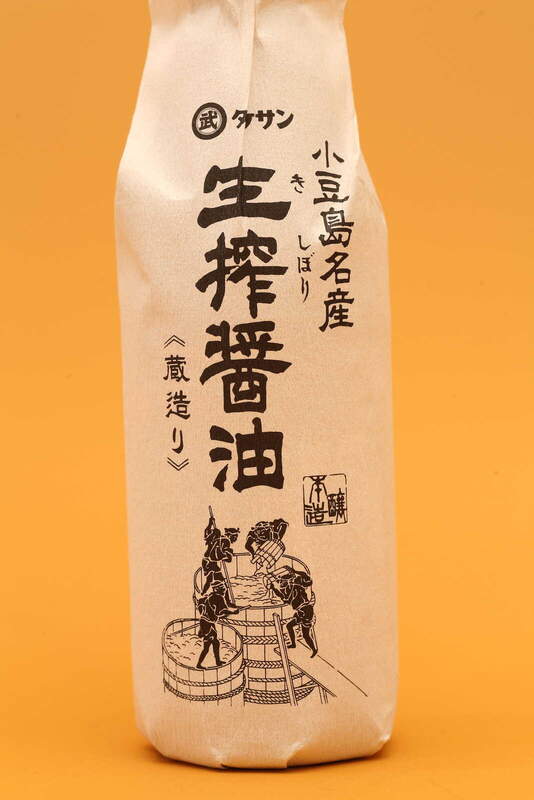 武 タケサン
小豆島名産
生搾醤油
き しぼり
《蔵造り》
本醸造